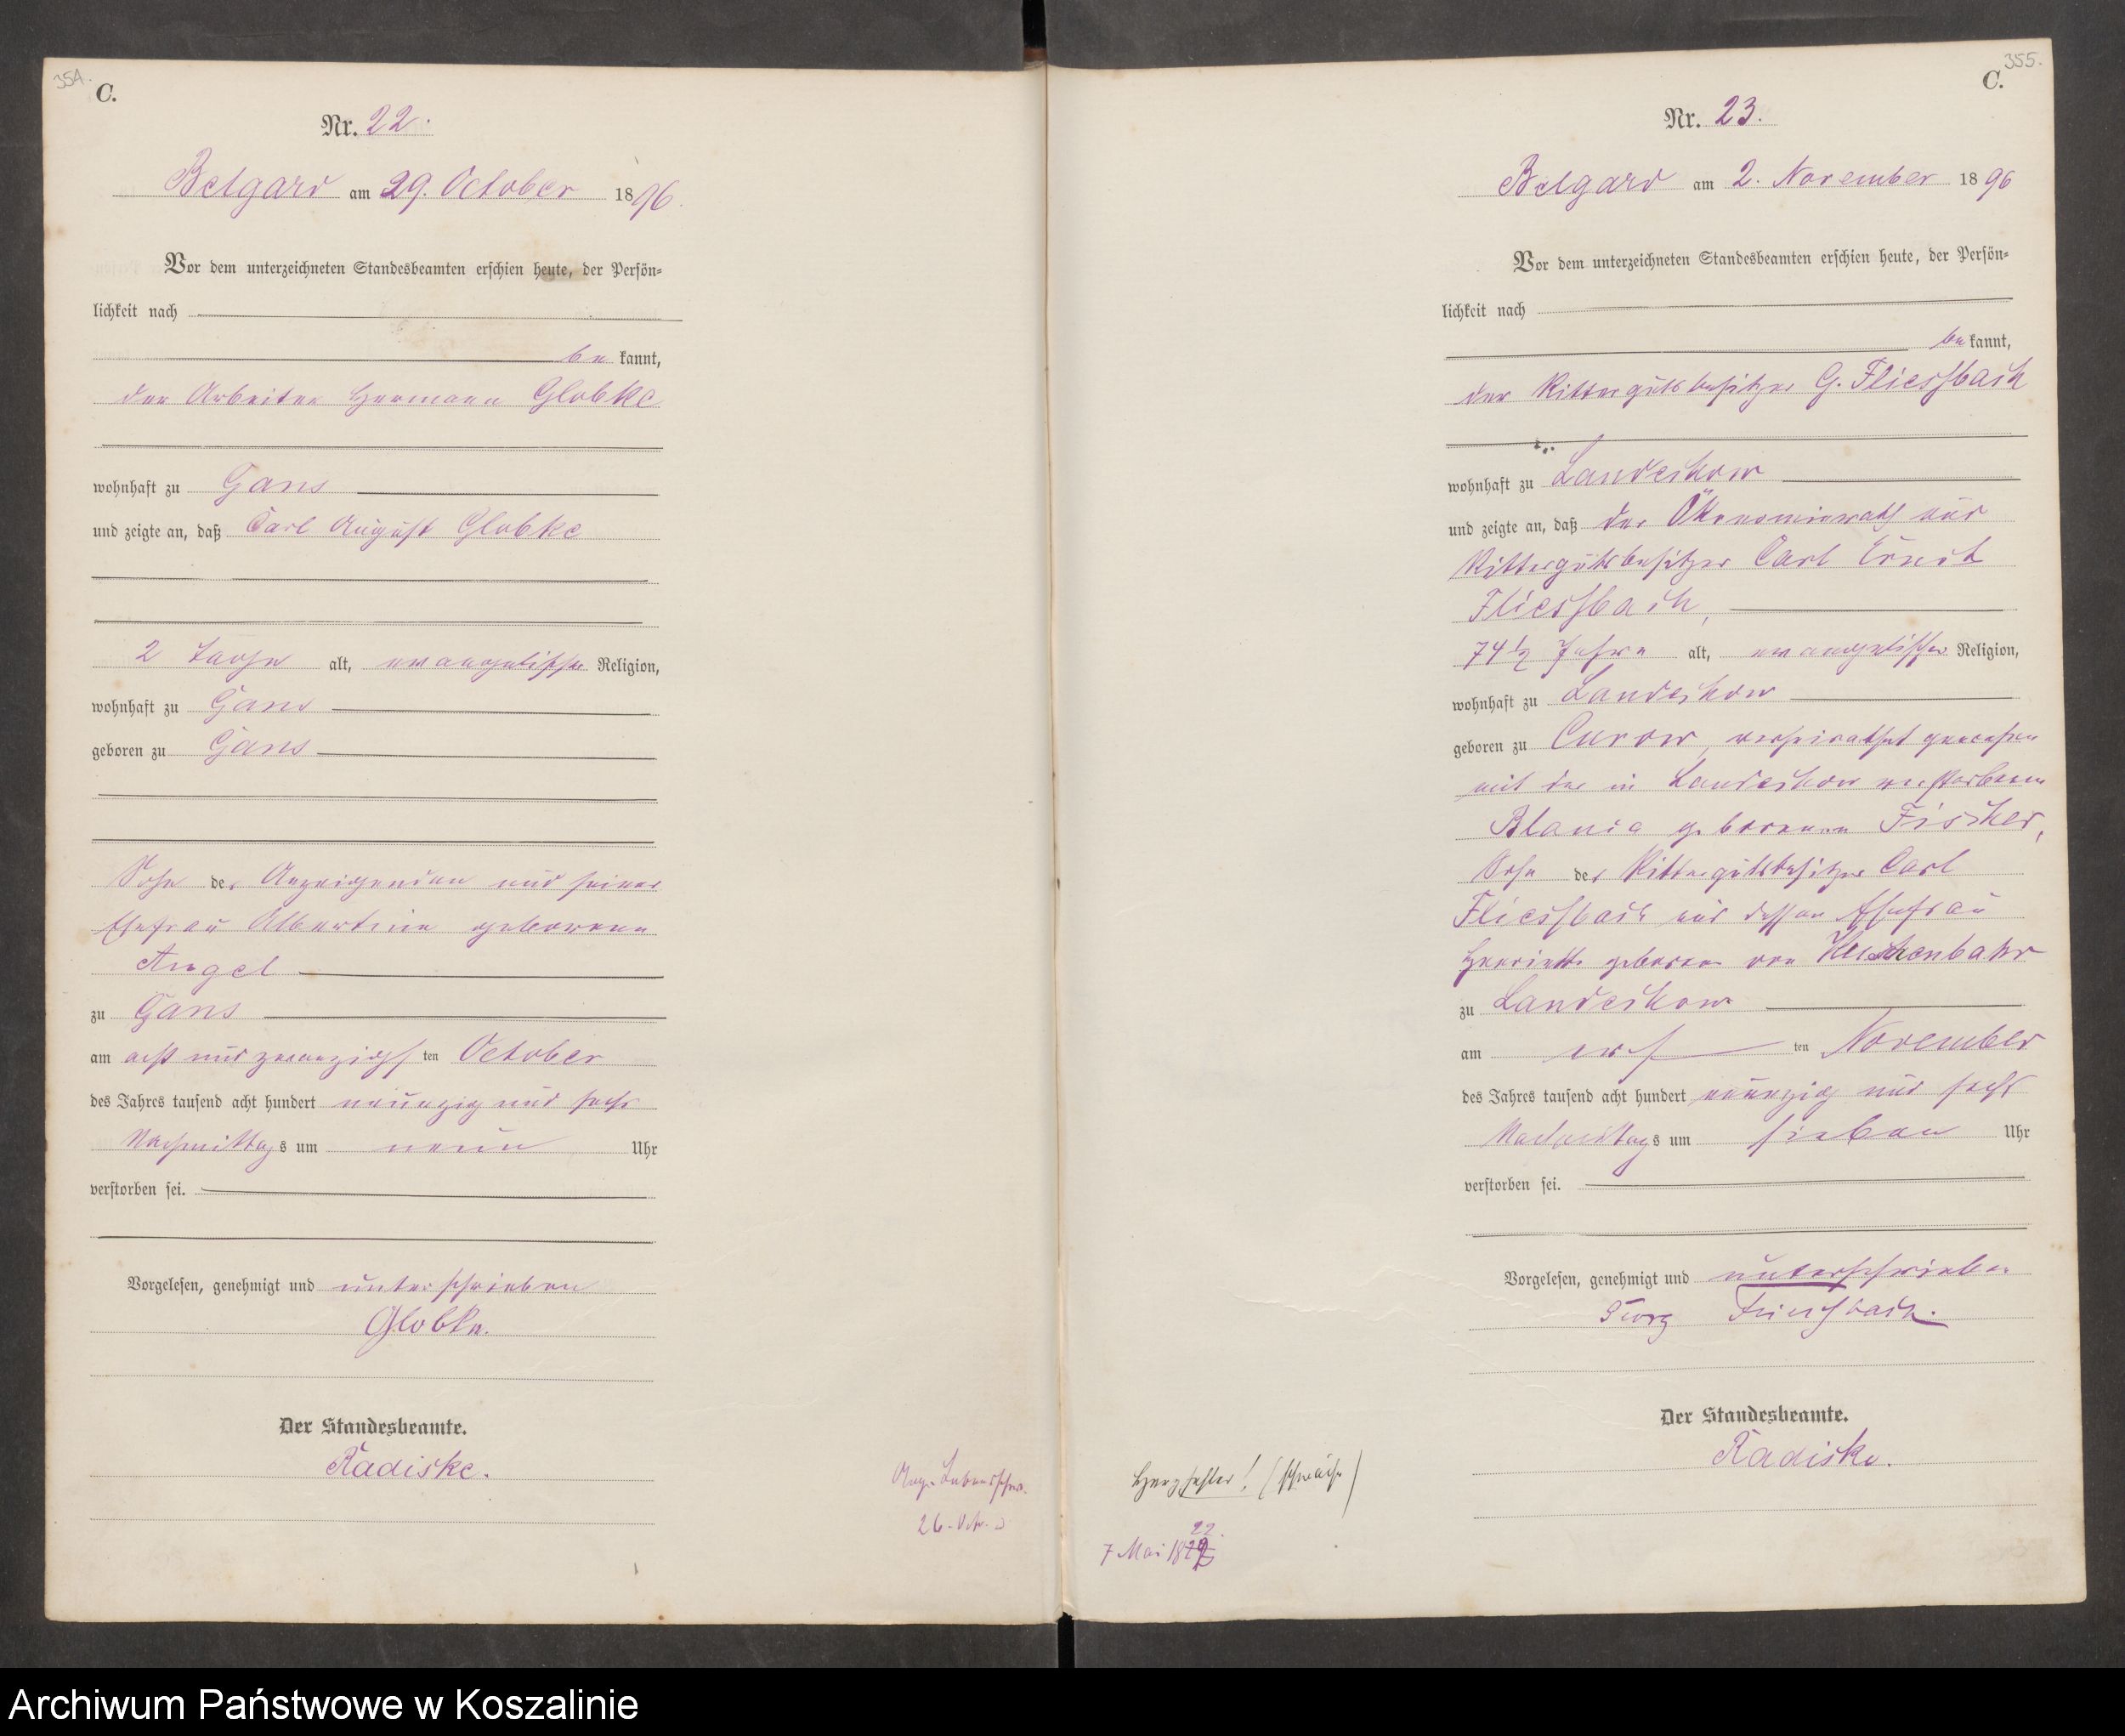 354.
C.
Nr. 22.
Belgard am 29. October 1896.
Vor dem unterzeichneten Standesbeamten erschien heute, der Persön-
lichkeit nach
be kannt,
der Arbeiter Hermann Globke
wohnhaft zu Gans
und zeigte an, daß Carl August Globke
2 Tage alt, evangelischer Religion,
wohnhaft zu Gans
geboren zu Gans
Sohn des Anzeigenden und seiner
Ehefrau Albertine geborene
Angel
zu Gans
am acht und zwanzigsten October
des Jahres tausend acht hundert neunzig und sechs
Nachmittags um neun Uhr
verstorben sei.
Vorgelesen, genehmigt und unterschrieben
Globke.
Der Standesbeamte.
Radiske.
Ang. Lebensschw.
26. Oct.
355.
C.
Nr. 23.
Belgard am 2. November 1896
Vor dem unterzeichneten Standesbeamten erschien heute, der Persön-
lichkeit nach
be kannt,
der Rittergutsbesitzer G. Fliessbach
wohnhaft zu Landechow
und zeigte an, daß der Ökonomierath und
Rittergutsbesitzer Carl Ernst
Fliessbach,
74 1/2 Jahre alt, evangelischer Religion,
wohnhaft zu Landechow
geboren zu Curow, verheirathet gewesen
mit der in Landechow verstorbenen
geborenen Fischer,
Sohn des Rittergutsbesitzer Carl
Fliessbach und dessen Ehefrau
Henriette geborene von
zu Landechow
am ersten November
des Jahres tausend acht hundert neunzig und sechs
Nachmittags um sieben Uhr
verstorben sei.
Vorgelesen, genehmigt und unterschrieben
Georg Fliessbach.
Der Standesbeamte.
Radiske.
Herzfehler! (schwäche)
22.
7 Mai 18
Archiwum Państwowe w Koszalinie